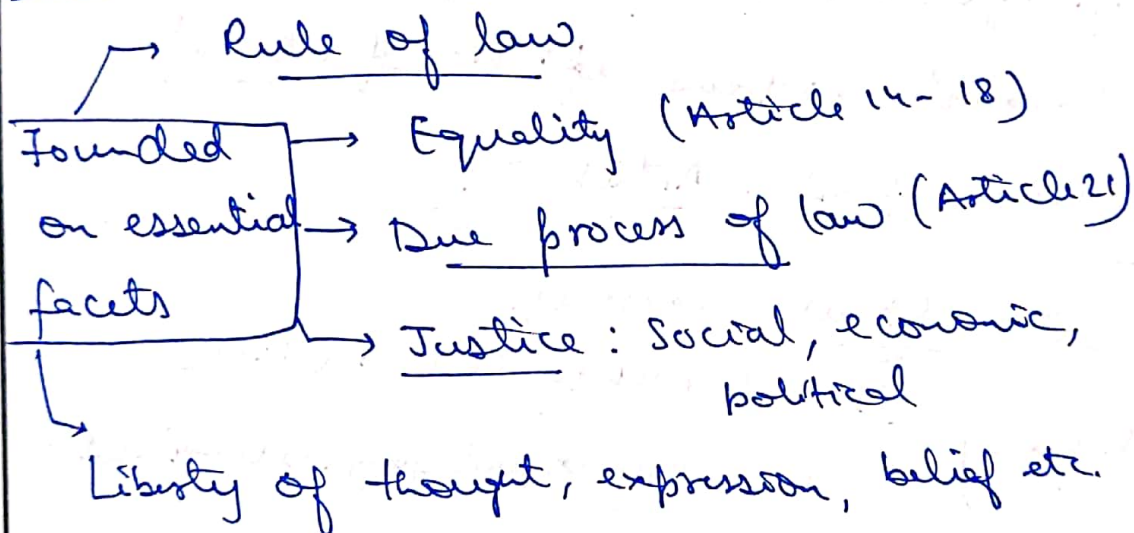 Rule of law.
Founded
on essential
facets
Equality (Article 14-18)
Due process of law (Article 21)
Justice : Social, economic,
political
Liberty of thought, expression, belief etc.